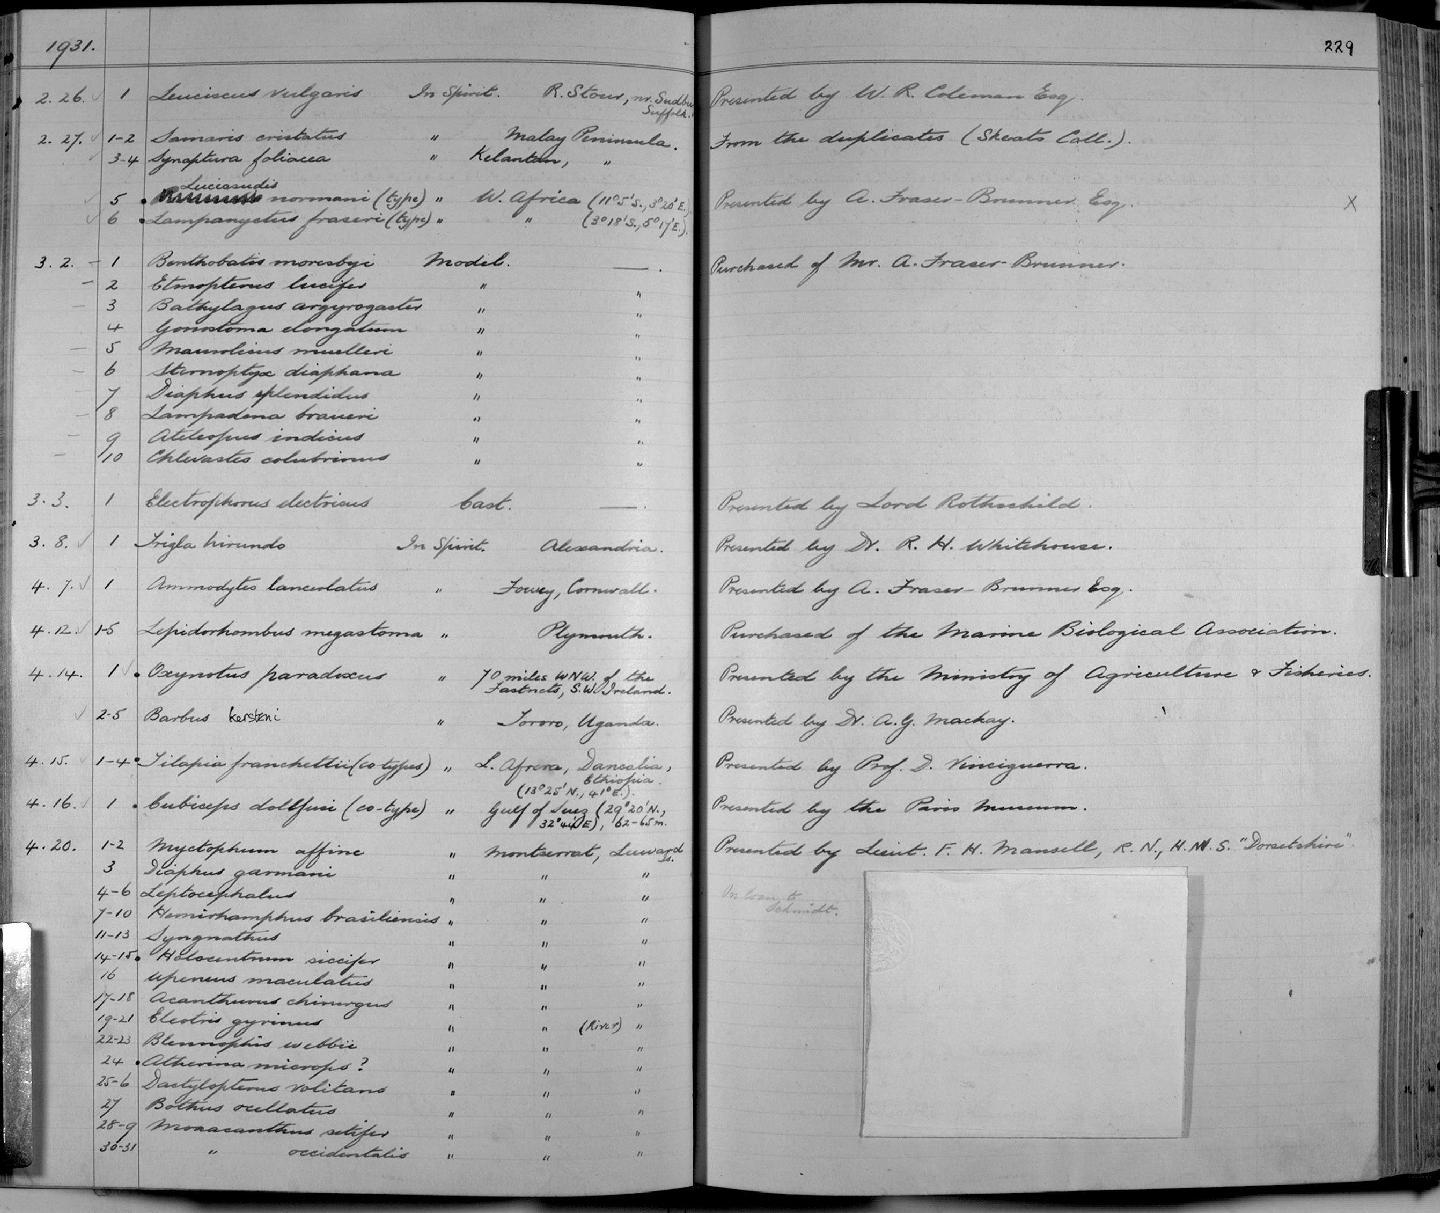 1931.
229
2. 26. 1 Leuciscus vulgaris In Spirit. R. Stour, nr. Sudbury Suffolk. Presented by W. R. Coleman Esq.
2. 27. 1-2 Samaris cristatus " Malay Peninsula. From the duplicates (Skeats Coll.).
3-4 Synaptura foliacea " Kelantan, "
Luciosudis
5 normani (type) " W. Africa (11°5'S., 3°20'E.) Presented by A. Fraser-Brunner Esq. X
6 Lampanyctus fraseri (type) " " (3°18'S., 5°17'E.).
3. 2. - 1 Benthobatis moresbyi Model. — . Purchased of Mr. A. Fraser-Brunner.
- 2 Etmopterus lucifer " "
- 3 Bathylagus argyrogaster " "
4 Gonostoma elongatum " "
- 5 Maurolicus muelleri " "
- 6 Sternoptyx diaphana " "
7 Diaphus splendidus " "
- 8 Lampadena braueri " "
- 9 Ateleopus indicus " "
- 10 Chlevastes colubrinus " "
3. 3. 1 Electrophorus electricus Cast. — . Presented by Lord Rothschild.
3. 8. 1 Trigla hirundo In Spirit. Alexandria. Presented by Dr. R. H. Whitehouse.
4. 7. 1 Ammodytes lanceolatus " Fowey, Cornwall. Presented by A. Fraser-Brunner Esq.
4. 12. 1-5 Lepidorhombus megastoma " Plymouth. Purchased of the Marine Biological Association.
4. 14. 1 Oxynotus paradoxus " 70 miles WNW. of the Fastnets, S.W. Ireland. Presented by the Ministry of Agriculture & Fisheries.
2-5 Barbus kersteni " Tororo, Uganda. Presented by Dr. A. G. Mackay.
4. 15. 1-4 Tilapia franchettii (co-types) " L. Afrera, Dancalia, Ethiopia. (13°25'N., 41°E.). Presented by Prof. D. Vinciguerra.
4. 16. 1 Cubiceps dollfusi (co-type) " Gulf of Suez (29°20'N., 32°44'E), 62-65 m. Presented by the Paris Museum.
4. 20. 1-2 Myctophum affine " Montserrat, Leeward Is. Presented by Lieut. F. H. Mansell, R.N., H.M.S. "Dorsetshire".
3 Diaphus garmani " " "
4-6 Leptocephalus " " " On loan to Schmidt.
7-10 Hemirhamphus brasiliensis " " "
11-13 Syngnathus " " "
14-15 Holocentrum siccifer " " "
16 Upeneus maculatus " " "
17-18 Acanthurus chirurgus " " "
19-21 Eleotris gyrinus " " (River) "
22-23 Blennophis webbii " " "
24 Atherina microps? " " "
25-6 Dactylopterus volitans " " "
27 Bothus ocellatus " " "
28-9 Monacanthus setifer " " "
30-31 " occidentalis " " "